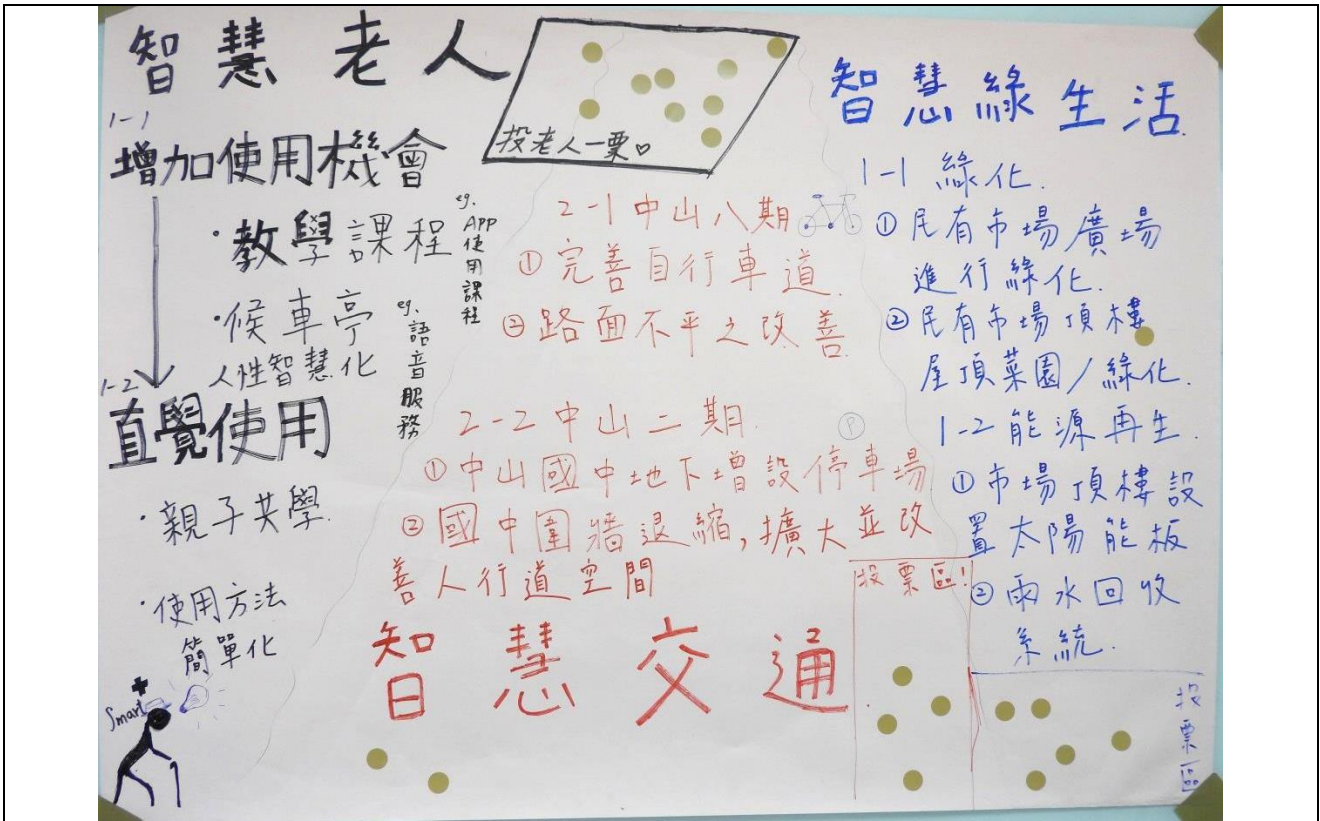 智慧老人
投老人一票♡
1-1
增加使用機會
·教學課程
eg. APP使用課程
·候車亭
人性智慧化
eg. 語音服務
1-2
直覺使用
·親子共學.
·使用方法
簡單化
Smart
2-1中山八期
①完善自行車道.
②路面不平之改善
2-2中山二期.
P
①中山國中地下增設停車場
②國中圍牆退縮,擴大並改
善人行道空間
智慧交通
投票區!
智慧綠生活.
1-1 綠化.
①民有市場廣場
進行綠化.
②民有市場頂樓
屋頂菜園/綠化.
1-2能源再生.
①市場頂樓設
置太陽能板
②雨水回收
系統.
投票區